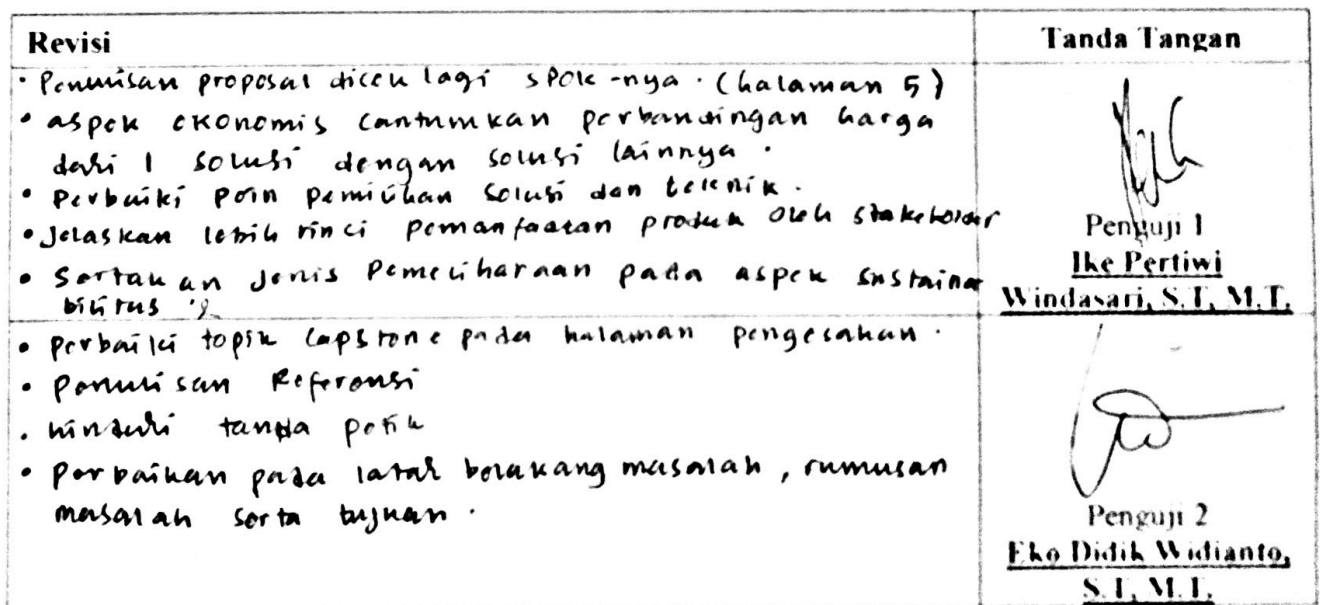 Revisi
Tanda Tangan
• Penulisan proposal dicek lagi SPOK-nya. (halaman 5)
• aspek ekonomis cantumkan perbandingan harga
dari 1 solusi dengan solusi lainnya.
• Perbaiki poin pemilihan solusi dan teknik.
• Jelaskan lebih rinci pemanfaatan produk oleh stakeholder
• Sertakan jenis pemeliharaan pada aspek sustaina
bilitas
Penguji 1
Ike Pertiwi
Windasari, S.T, M.T.
• perbaiki topik Capstone pada halaman pengesahan.
• Penulisan Referensi
• hindari tanda petik
• perbaikan pada latar belakang masalah, rumusan
masalah serta tujuan.
Penguji 2
Eko Didik Widianto,
S.T, M.T.